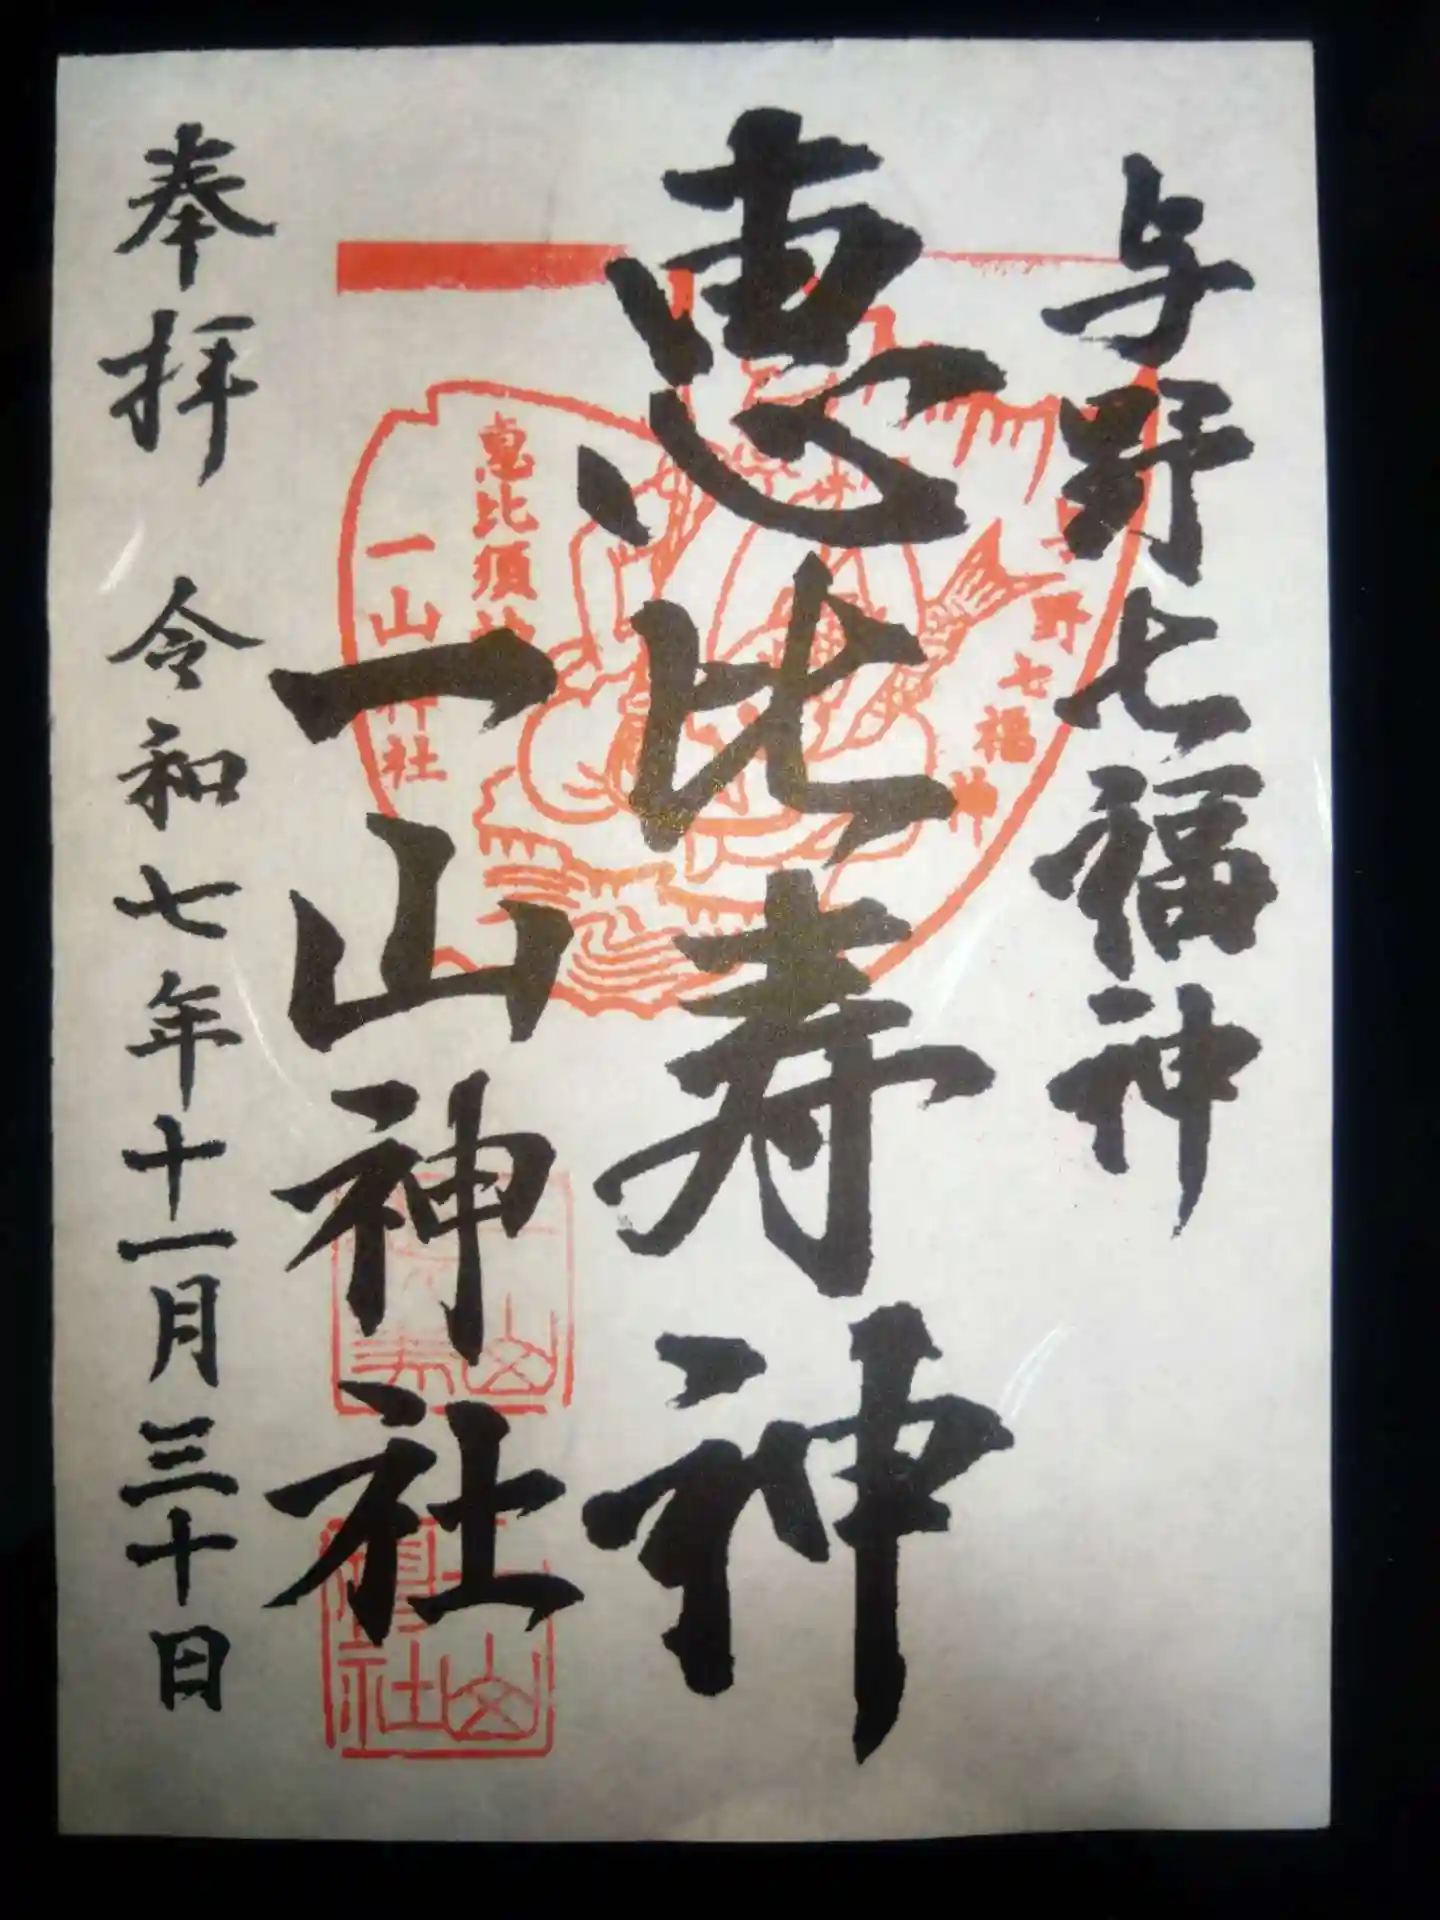 与野七福神
恵比寿神
一山神社
奉拝 令和七年十一月三十日
野七福神
恵比須神
一山神社